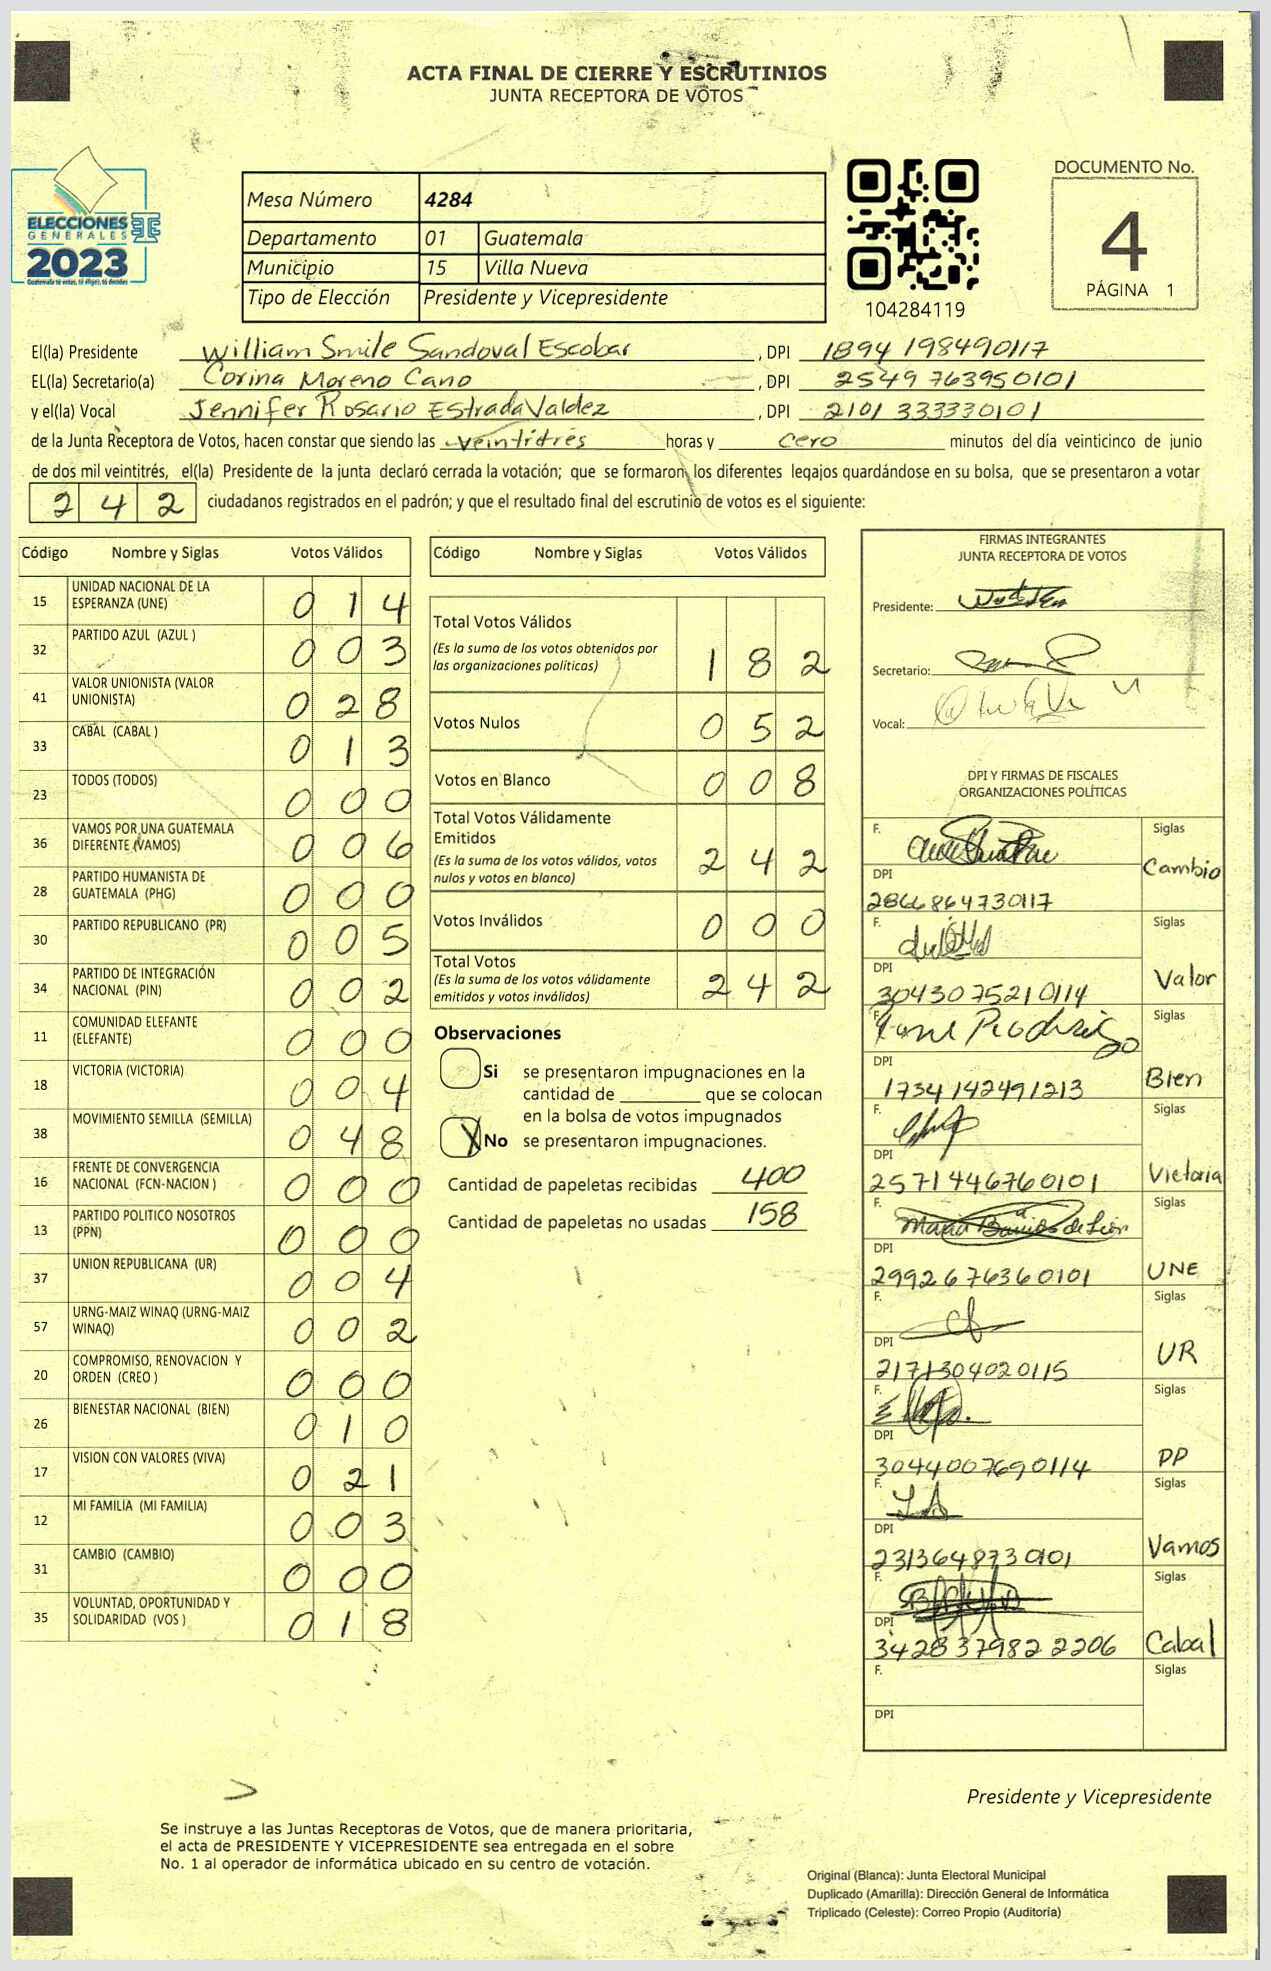 ACTA FINAL DE CIERRE Y ESCRUTINIOS
JUNTA RECEPTORA DE VOTOS
ELECCIONES
GENERALES
2023
Guatemala tú votas, tú eliges, tú decides
Mesa Número 4284
Departamento 01 Guatemala
Municipio 15 Villa Nueva
Tipo de Elección Presidente y Vicepresidente
104284119
DOCUMENTO No.
4
PÁGINA 1
El(la) Presidente William Smile Sandoval Escobar, DPI 1894 198490117
EL(la) Secretario(a) Corina Moreno Cano, DPI 2549 763950101
y el(la) Vocal Jennifer Rosario Estrada Valdez, DPI 2101 333330101
de la Junta Receptora de Votos, hacen constar que siendo las veintitrés horas y cero minutos del día veinticinco de junio
de dos mil veintitrés, el(la) Presidente de la junta declaró cerrada la votación; que se formaron los diferentes legajos quardándose en su bolsa, que se presentaron a votar
242 ciudadanos registrados en el padrón; y que el resultado final del escrutinio de votos es el siguiente:
Código Nombre y Siglas Votos Válidos
15 UNIDAD NACIONAL DE LA ESPERANZA (UNE) 014
32 PARTIDO AZUL (AZUL ) 003
41 VALOR UNIONISTA (VALOR UNIONISTA) 028
33 CABAL (CABAL ) 013
23 TODOS (TODOS) 000
36 VAMOS POR UNA GUATEMALA DIFERENTE (VAMOS) 006
28 PARTIDO HUMANISTA DE GUATEMALA (PHG) 000
30 PARTIDO REPUBLICANO (PR) 005
34 PARTIDO DE INTEGRACIÓN NACIONAL (PIN) 002
11 COMUNIDAD ELEFANTE (ELEFANTE) 000
18 VICTORIA (VICTORIA) 004
38 MOVIMIENTO SEMILLA (SEMILLA) 048
16 FRENTE DE CONVERGENCIA NACIONAL (FCN-NACION ) 000
13 PARTIDO POLITICO NOSOTROS (PPN) 000
37 UNION REPUBLICANA (UR) 004
57 URNG-MAIZ WINAQ (URNG-MAIZ WINAQ) 002
20 COMPROMISO, RENOVACION Y ORDEN (CREO ) 000
26 BIENESTAR NACIONAL (BIEN) 010
17 VISION CON VALORES (VIVA) 021
12 MI FAMILIA (MI FAMILIA) 003
31 CAMBIO (CAMBIO) 000
35 VOLUNTAD, OPORTUNIDAD Y SOLIDARIDAD (VOS ) 018
Código Nombre y Siglas Votos Válidos
Total Votos Válidos 182
(Es la suma de los votos obtenidos por
las organizaciones políticas)
Votos Nulos 052
Votos en Blanco 008
Total Votos Válidamente
Emitidos 242
(Es la suma de los votos válidos, votos
nulos y votos en blanco)
Votos Inválidos 000
Total Votos 242
(Es la suma de los votos válidamente
emitidos y votos inválidos)
Observaciones
Si se presentaron impugnaciones en la
cantidad de ________ que se colocan
en la bolsa de votos impugnados
X No se presentaron impugnaciones.
Cantidad de papeletas recibidas 400
Cantidad de papeletas no usadas 158
FIRMAS INTEGRANTES
JUNTA RECEPTORA DE VOTOS
Presidente:
Secretario:
Vocal:
DPI Y FIRMAS DE FISCALES
ORGANIZACIONES POLÍTICAS
F. Siglas
Cambio
DPI
2866864730117
F. Siglas
Valor
DPI
3043075210114
F. Siglas
Bien
DPI
1734142491213
F. Siglas
Victoria
DPI
25714467 60101
F. Maria Barrios de León Siglas
UNE
DPI
2992676360101
F. Siglas
UR
DPI
2171304020115
F. Siglas
PP
DPI
3044007690114
F. Siglas
Vamos
DPI
2313648730101
F. Siglas
Cabal
DPI
3428379822206
F. Siglas
DPI
Presidente y Vicepresidente
Se instruye a las Juntas Receptoras de Votos, que de manera prioritaria,
el acta de PRESIDENTE Y VICEPRESIDENTE sea entregada en el sobre
No. 1 al operador de informática ubicado en su centro de votación.
Original (Blanca): Junta Electoral Municipal
Duplicado (Amarilla): Dirección General de Informática
Triplicado (Celeste): Correo Propio (Auditoría)